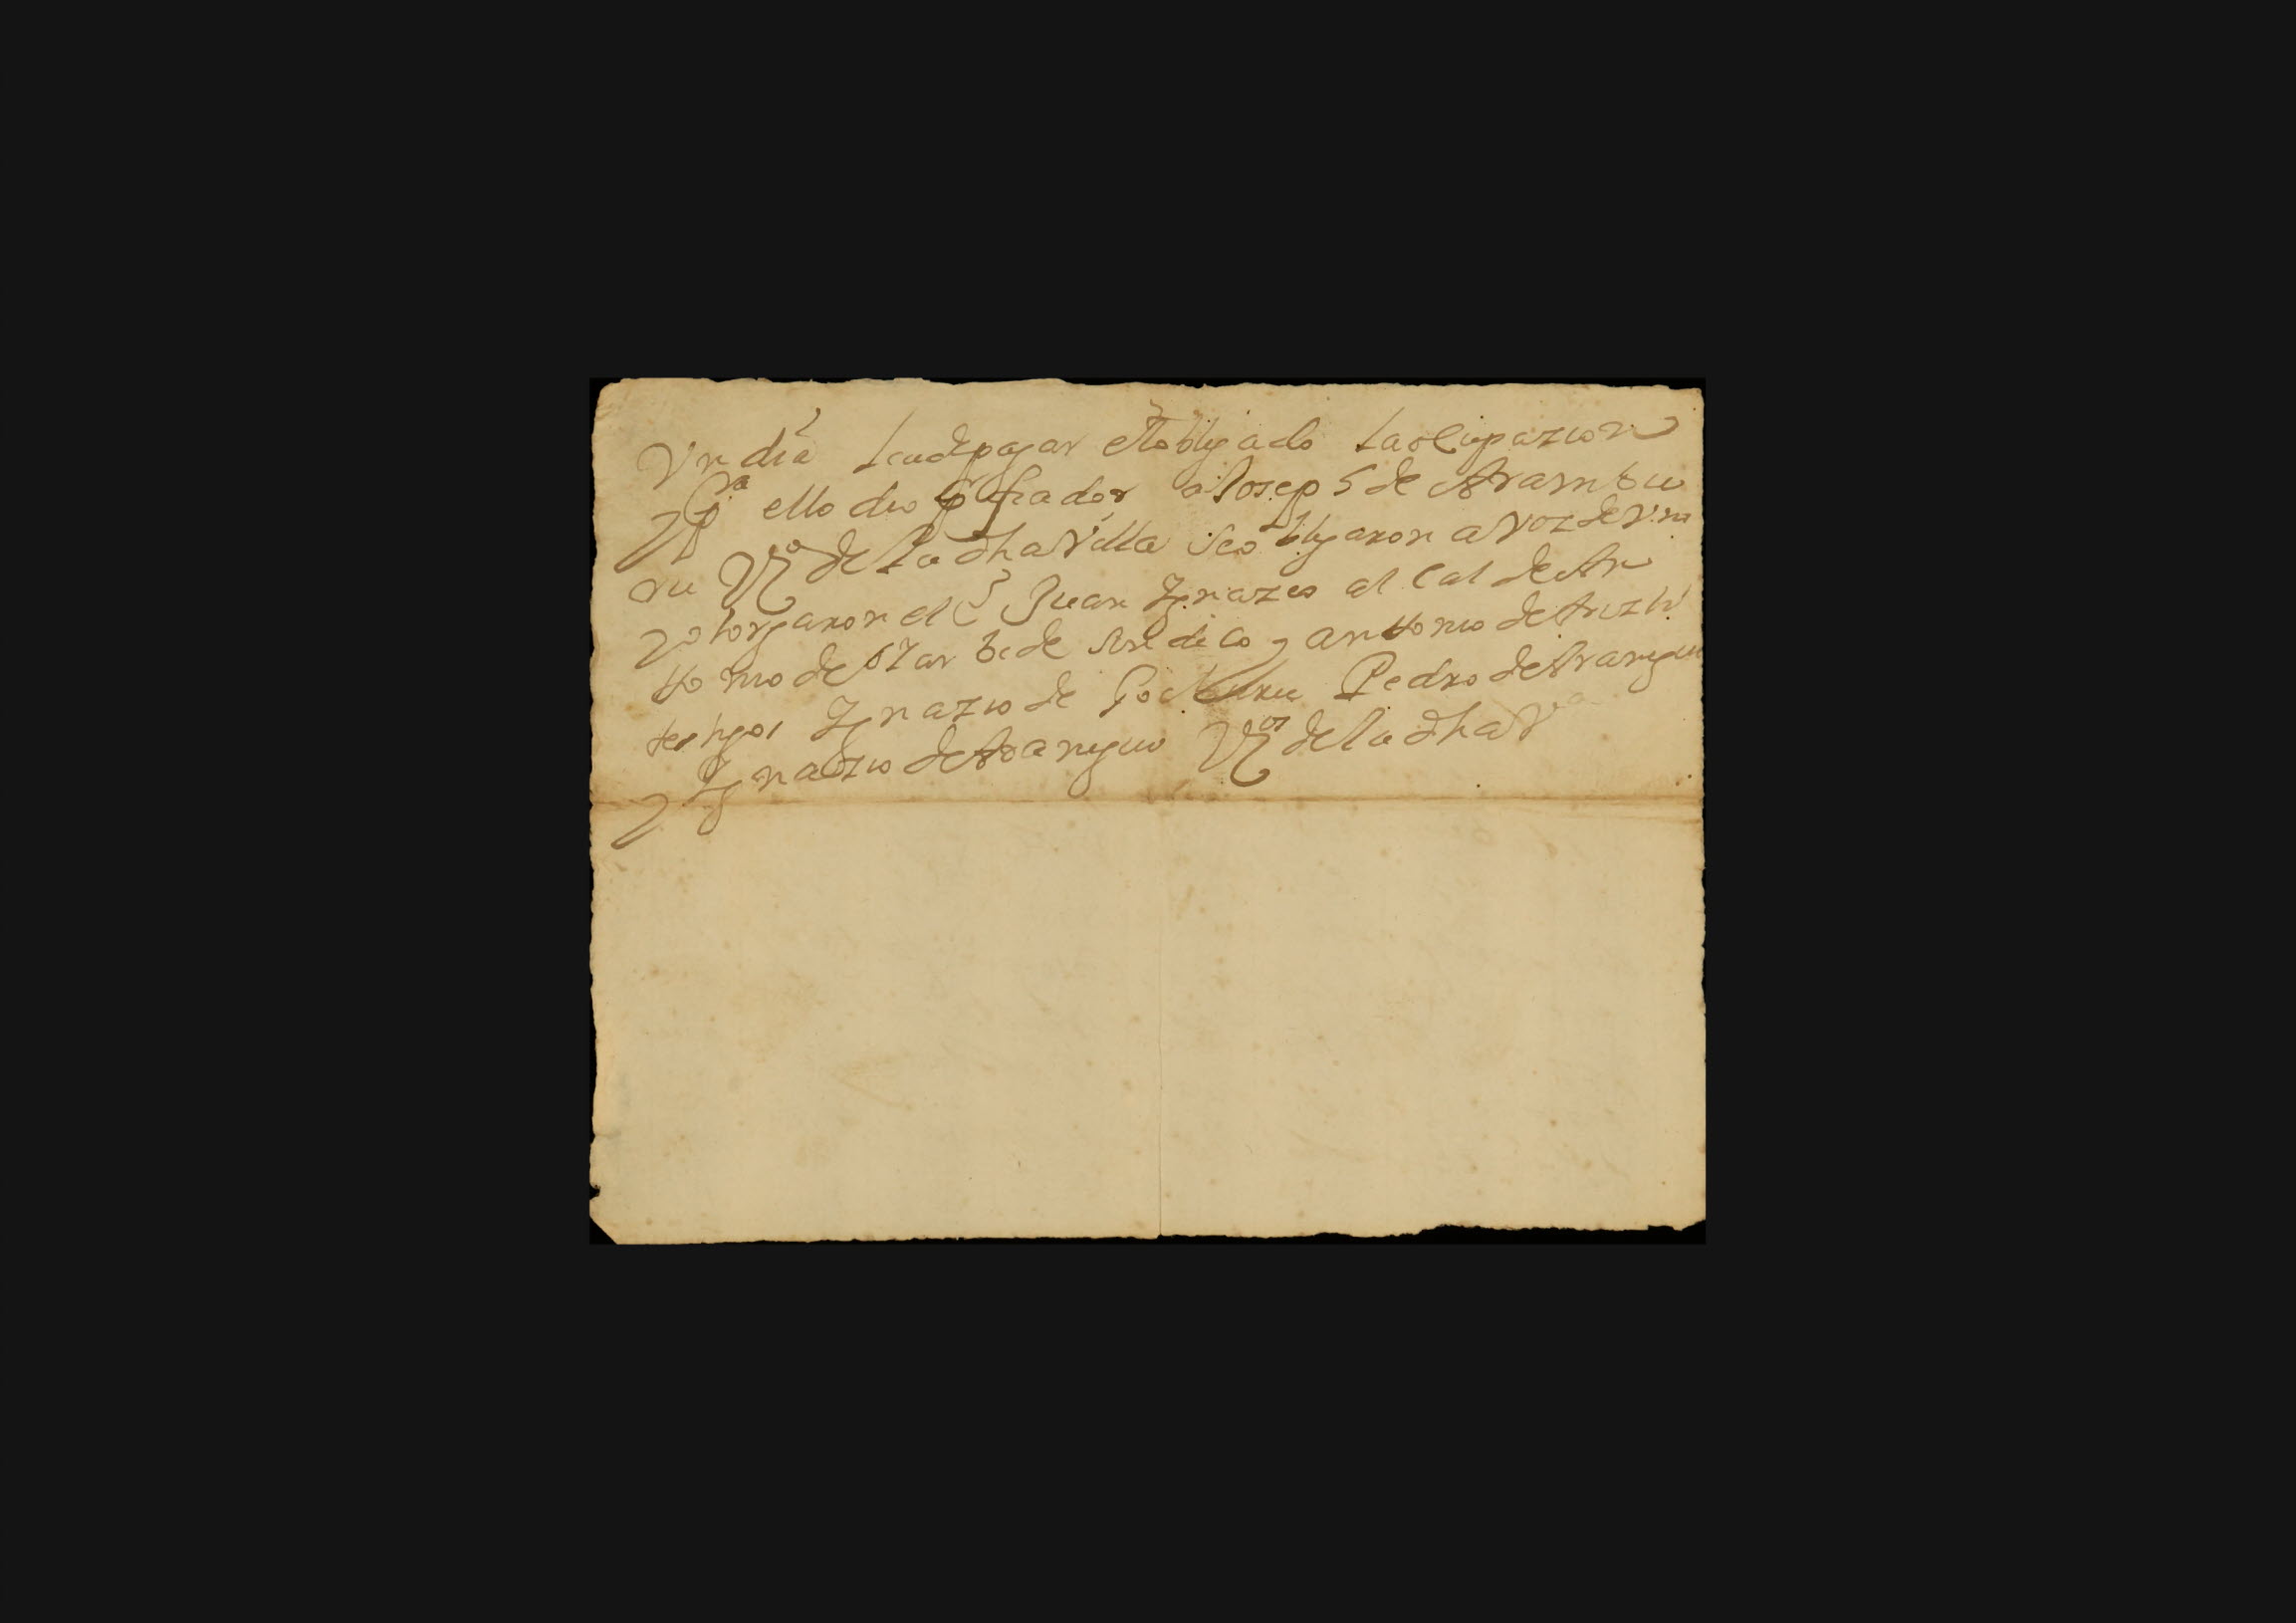 Vn dia leadepagar el obligado la ocupazion
y pra ello dio por fiador a Joseph de Arambu
ru Vº de la dha Villa se obligaron a voz de Vn
y otorgaron el Juan Ignazio al cal de An
ttonio de Izar be de sindico y anttonio de
testigos Ignazio de Pedro de Arangu
y Ignazio de Aranguio Vos de la dha Va